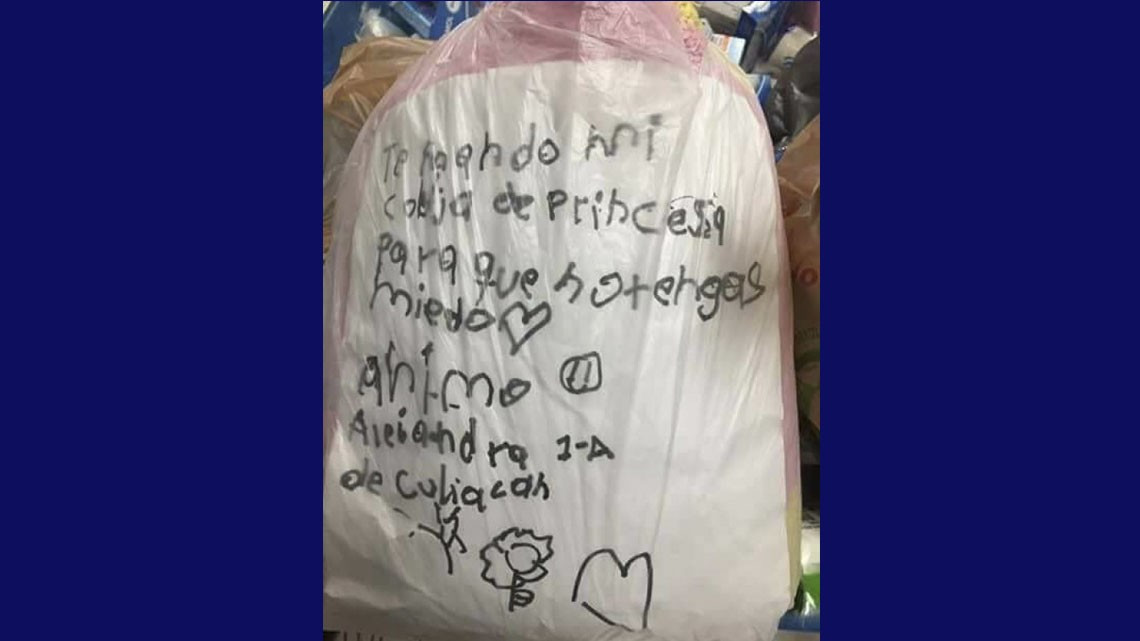 Te mando mi
cobija de princesa
para que no tengas
miedo
animo
Alejandra 1-A
de Culiacan